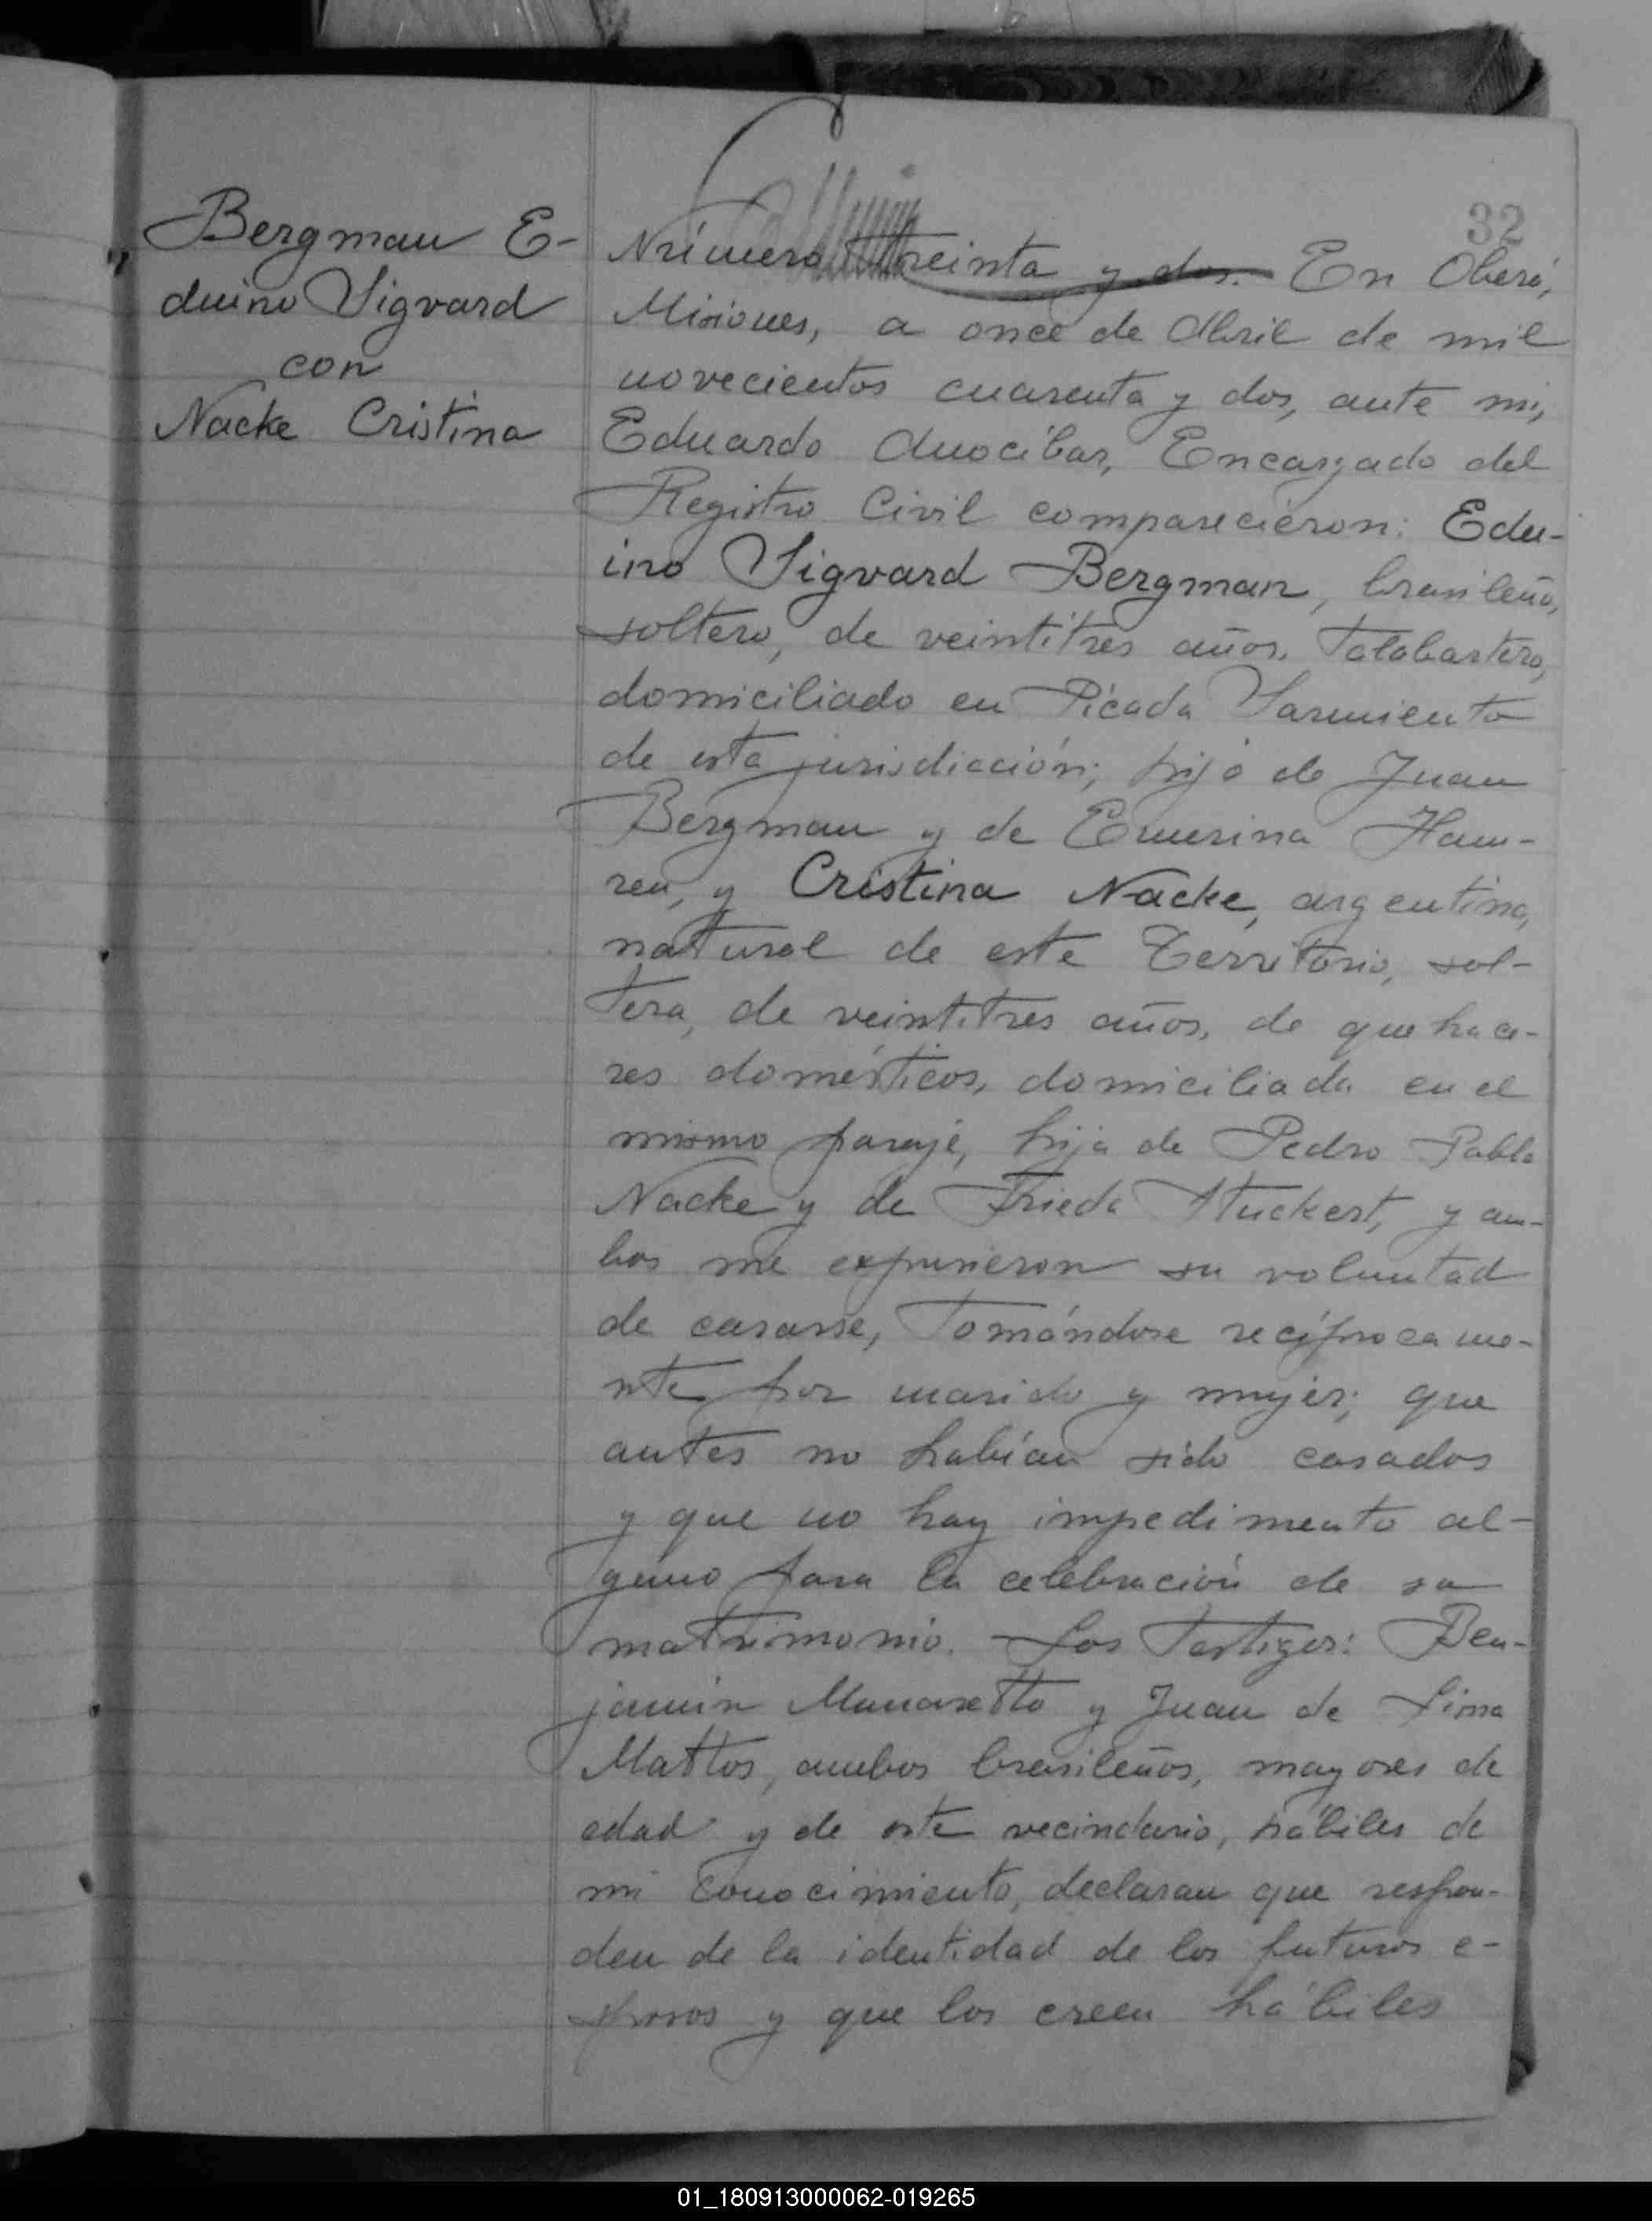 32
Bergman E-
duino Sigvard
con
Nacke Cristina
Número treinta y dos. En Oberá,
Misiones, a once de Abril de mil
novecientos cuarenta y dos, ante mi,
Eduardo Anocibar, Encargado del
Registro Civil comparecieron: Edu-
ino Sigvard Bergman, brasileño,
soltero, de veintitres años, Talabartero,
domiciliado en Picada Sarmiento
de esta jurisdicción; hijo de Juan
Bergman y de Emerina Ham-
ren, y Cristina Nacke, argentina,
natural de este Territorio, sol-
tera, de veintitres años, de quehace-
res domésticos, domiciliada en el
mismo paraje, hija de Pedro Pablo
Nacke y de Frieda Stuckert, y am-
bos me expusieron su voluntad
de casarse, tomándose recíprocame-
nte por marido y mujer; que
antes no habían sido casados
y que no hay impedimento al-
guno para la celebración de su
matrimonio. Los Testigos: Ben-
jamin y Juan de Lima
Mattos, ambos brasileños, mayores de
edad y de este vecindario, hábiles de
mi conocimiento, declaran que respon-
den de la identidad de los futuros e-
sposos y que los creen hábiles
01_180913000062-019265